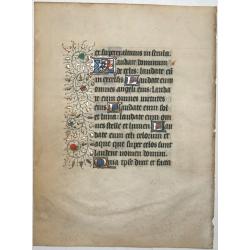 et super alinum in secula.
Laudate dominum
de celis: laudate eū
in excelsis Laudate
eum omnes angeli eius: lauda
te eum omnes uirtutes
eius Laudate eum sol
et luna: laudate eum om
nes stelle et lumen Lauda
te eum celi celorum et
aque que super celos sunt
laudent nomen domini
Quia ipse dixit et facta